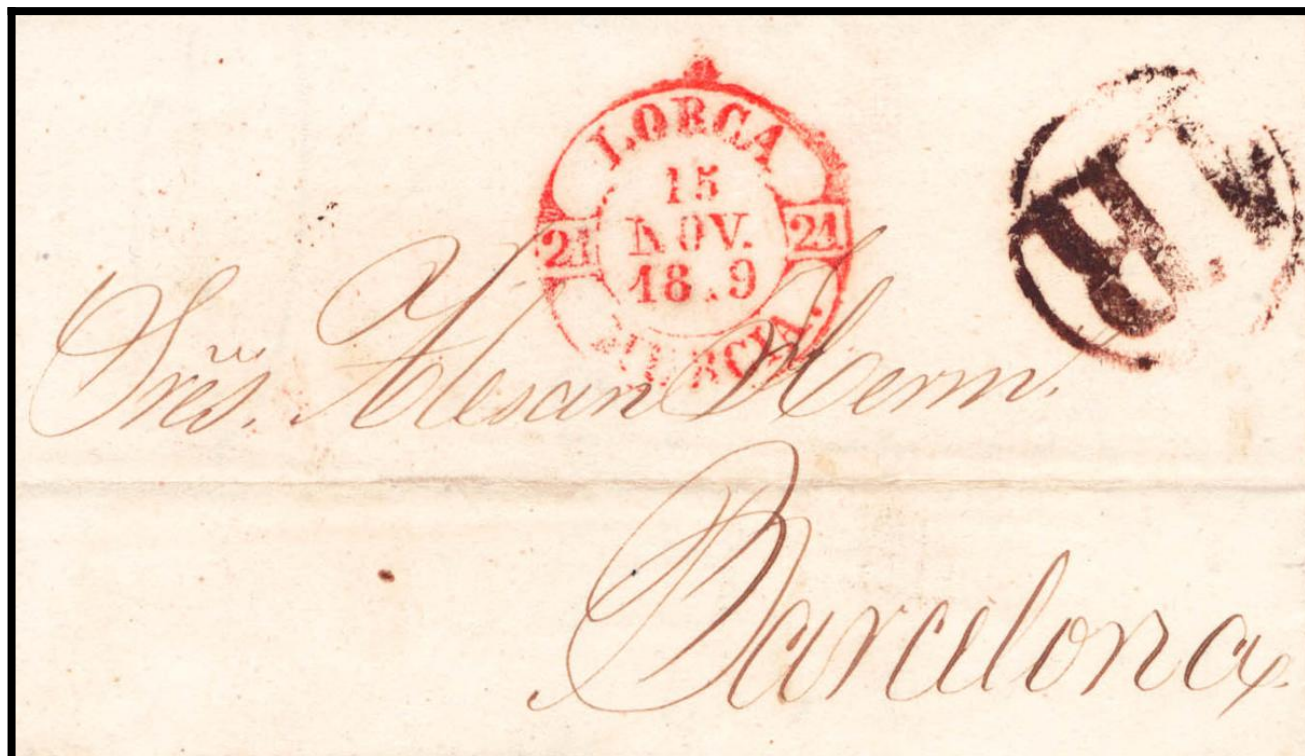 LORCA
15
NOV.
18 9
21 21
MURCIA.
1R
Sres. Alesan Herm.
Barcelona